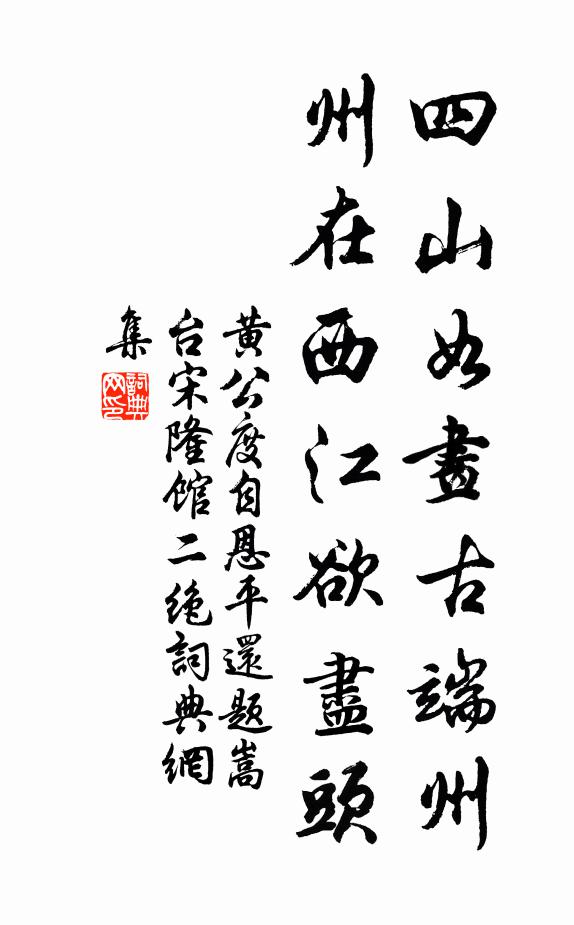 四山如畫古端州
州在西江欲盡頭
黃公度自恩平還題嵩
台宋隆館二絕詞典網
集
詞典網印